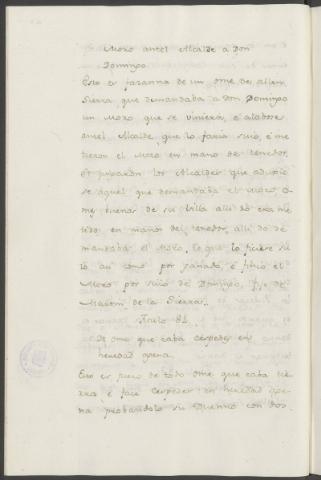 Moro antel Alcalde a Don
Domingo
Esto es fazanna de un ome de allen
Sierra que demandaba a Don Domingo
un Moro que se viniera, é
antel Alcalde que lo faria suio, é me
tieron el Moro en mano de tenedor,
et los Alcaldes que
se aquel que demandaba el Moro, o
mes buenos de su Villa alli do era me
tido en mano del tenedor, alli do de
mandaba el Moro, é que lo ficiere su
io asi como por ganado, é fizo el
Moro por suio de Domingo, fijo de
Martin de la Sierra.
Titulo 82
De ome que caba cespedes en
heredad agena.
Esto es fuero de todo ome que caba tie
rra é face cespedes en heredad age
na probandolo su Duenno con dos